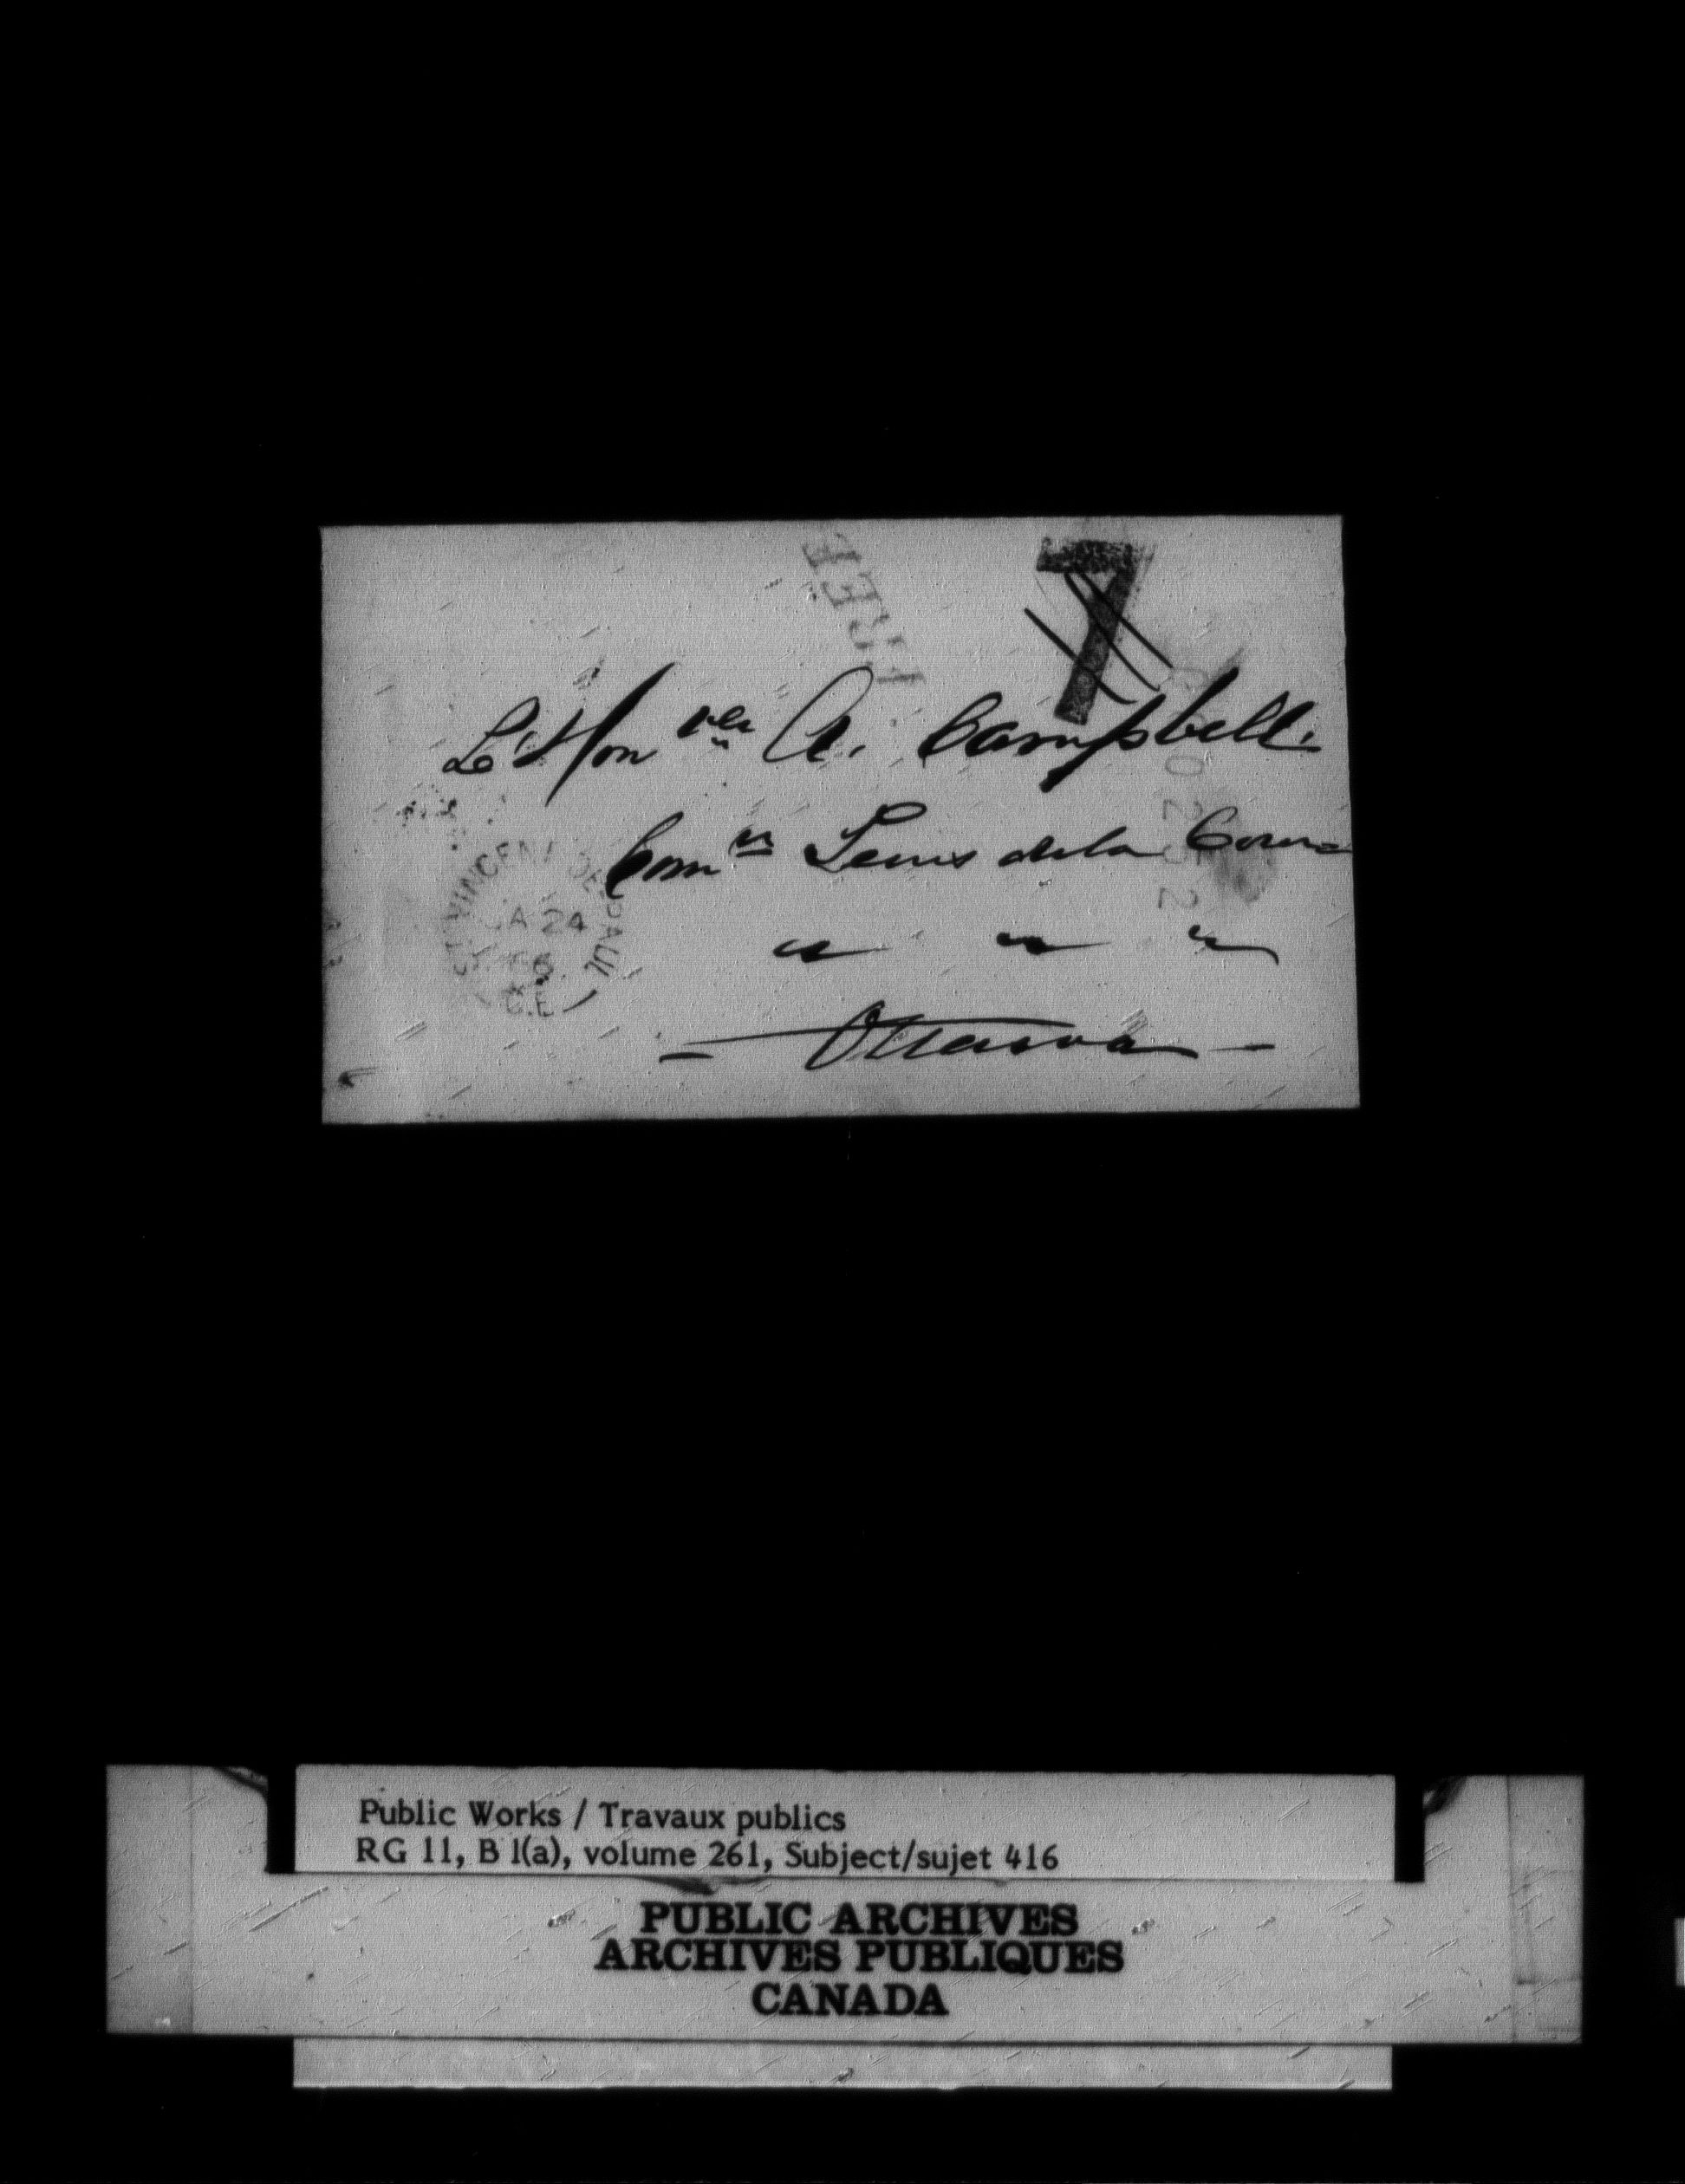 FREE
7
L'Hon ble A. Campbell.
Com re Terres de la Couro
" " "
Ottawa
ST. VINCENT DE PAUL
JA 24
66
C.E
Public Works / Travaux publics
RG 11, B 1(a), volume 261, Subject/sujet 416
PUBLIC ARCHIVES
ARCHIVES PUBLIQUES
CANADA